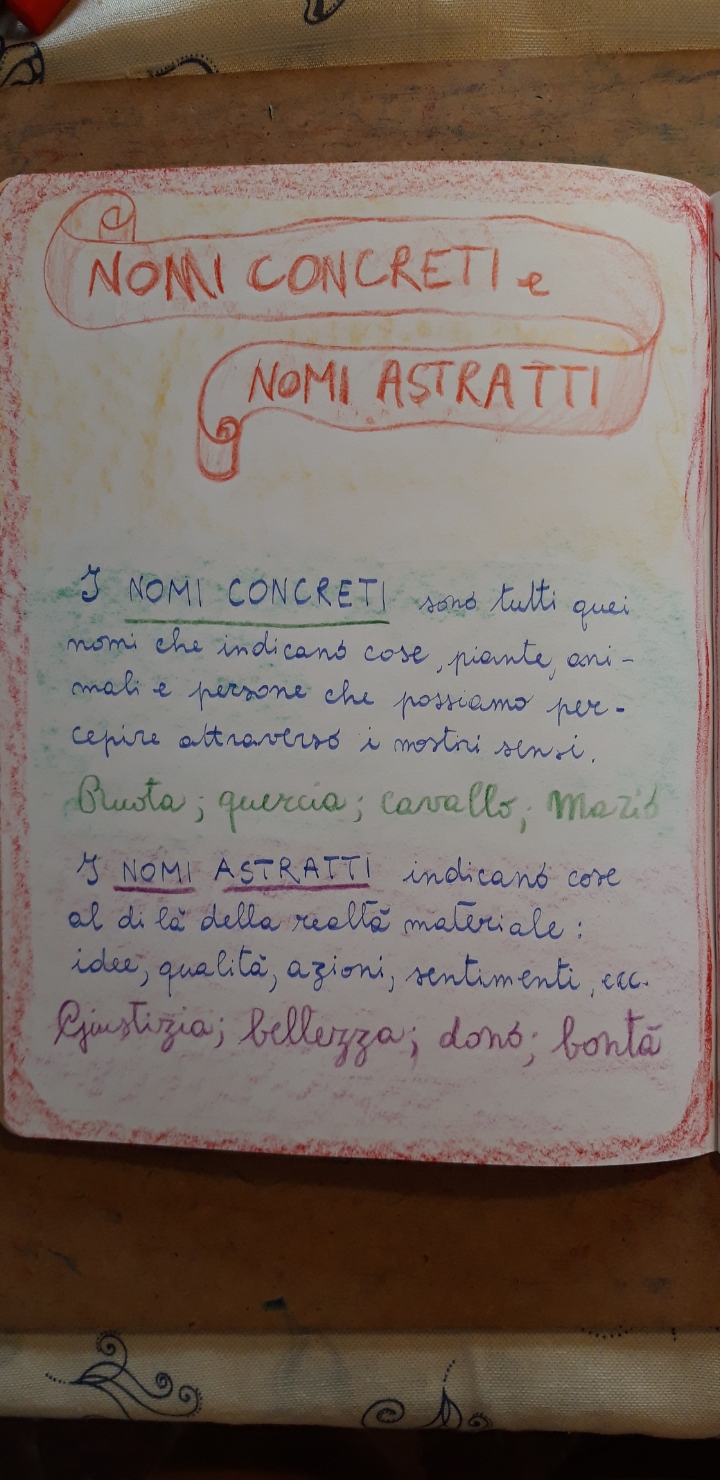 NOMI CONCRETI e
NOMI ASTRATTI
I NOMI CONCRETI sono tutti quei
nomi che indicano cose, piante, ani-
mali e persone che possiamo per-
cepire attraverso i nostri sensi.
Ruota; quercia; cavallo; Mario
I NOMI ASTRATTI indicano cose
al di là della realtà materiale:
idee, qualità, azioni, sentimenti, ecc.
Giustizia; bellezza; dono; bontà